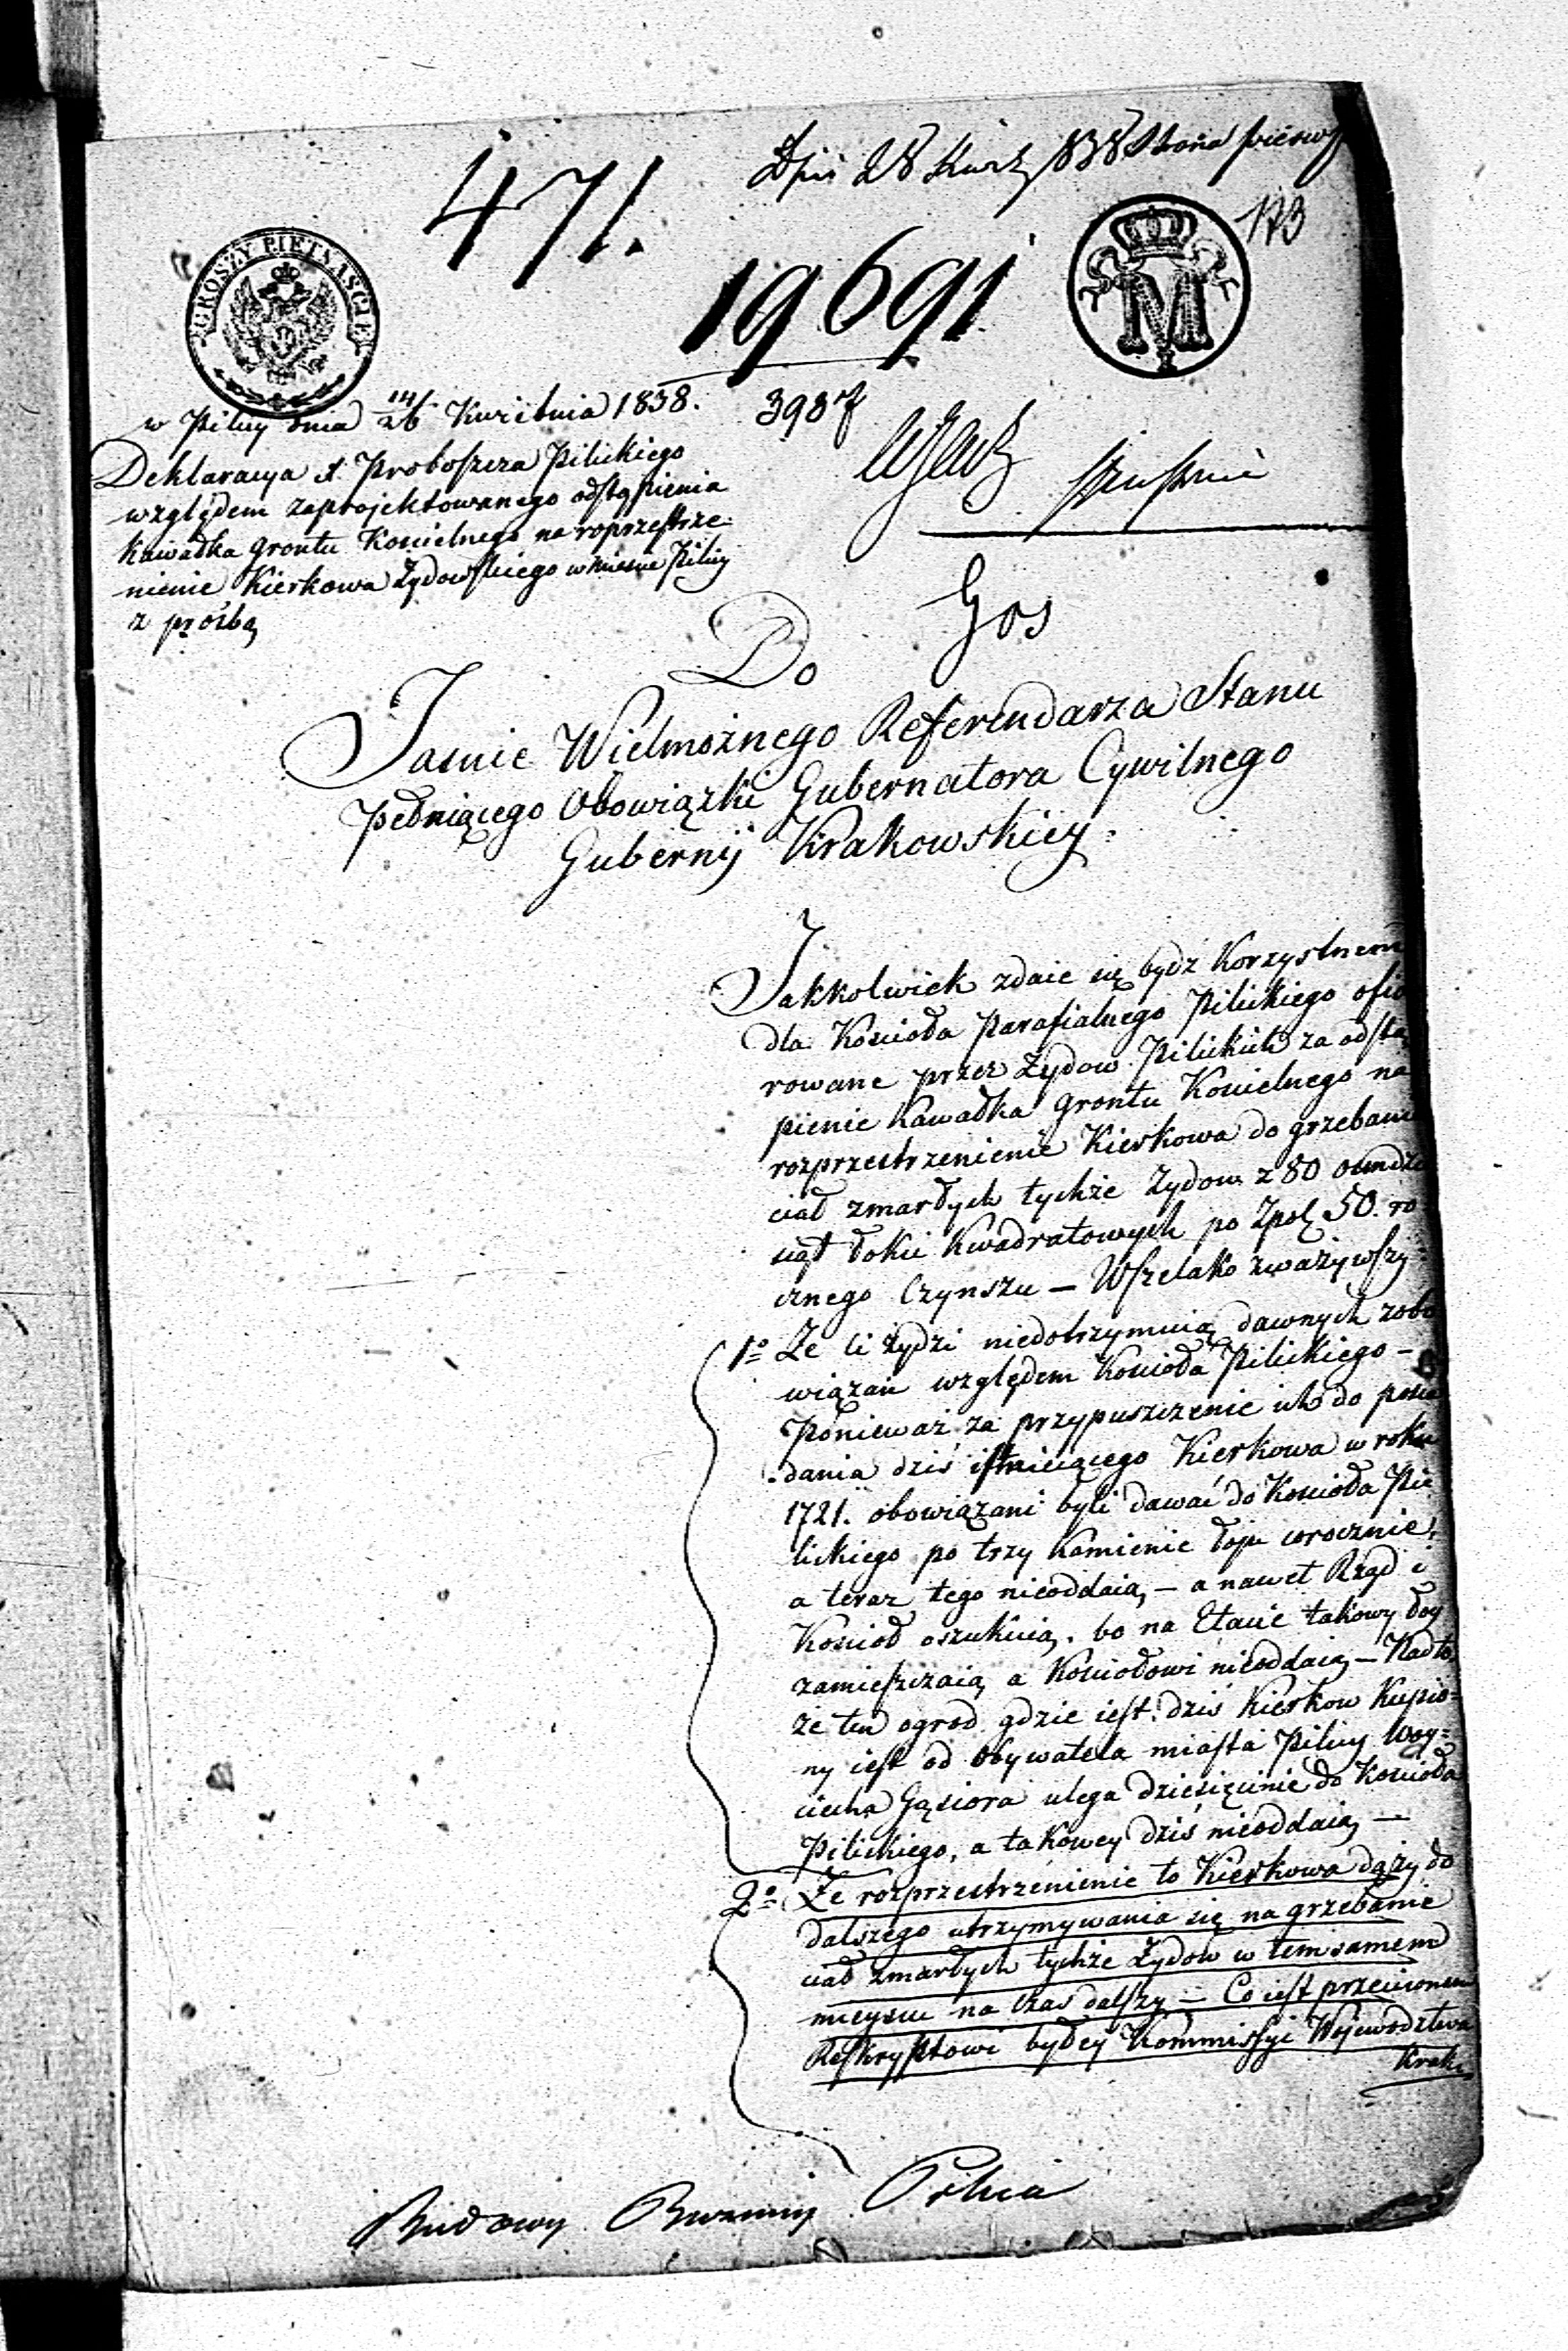 471.
Dnia 28 Kwiet 1838 Strona pierwsza
173
GROSZY PIETNAŚCIE
M
19691
3987
w Pilicy dnia 14/26 Kwietnia 1838.
Deklaracya X Proboszcza Pilickiego
względem zaprojektowanego odstąpienia
kawałka grontu Kościelnego na roprzestrze-
nienie Kierkowa Żydowskiego w mieście Pilicy
z proźbą
Gos
Do
Jaśnie Wielmożnego Referendarza Stanu
Pełniącego Obowiązki Gubernatora Cywilnego
Gubernij Krakowskiey.
Jakkolwiek zdaie się bydź korzystnem
dla Kościoła Parafialnego Pilickiego ofia
rowane przez Żydow Pilickich za odstą
pienie kawałka grontu Kościelnego na
rozprzestrzenienie Kierkowa do grzebania
ciał zmarłych tychże Żydow z 80 osmdzie
siąt łokci kwadratowych po Złpol 50. ro
cznego Czynszu — Wszelako zważywszy
1o Że ci żydzi niedotrzymuią dawnych zobo
wiązań względem Kościoła Pilickiego —
Ponieważ za przypuszczenie ich do posia
dania dziś istnieiącego Kierkowa w roku
1721. obowiązani byli dawać do Kościoła Pi
lickiego po trzy kamienie łoju corocznie,
a teraz tego nieoddaią, — a nawet Rząd i
Kościoł oszukuią, bo na Etacie takowy łoy
zamieszczaią, a Kościołowi nieoddaią — Nadto
że ten ogrod gdzie iest dziś Kierkow kupio-
ny iest od Obywatela miasta Pilicy Woy-
ciecha Gąsiora ulega dziesięcinie do Kościoła
Pilickiego, a takowey dziś nieoddaią —
2o Że rozprzestrzenienie to Kierkowa dąży do
dalszego utrzymywania się na grzebanie
ciał zmarłych tychże Żydow w tem samem
mieyscu na czas dalszy — Co iest przeciwnem
Reskryptowi byłey Kommissyi Województwa
Krak
Pilica